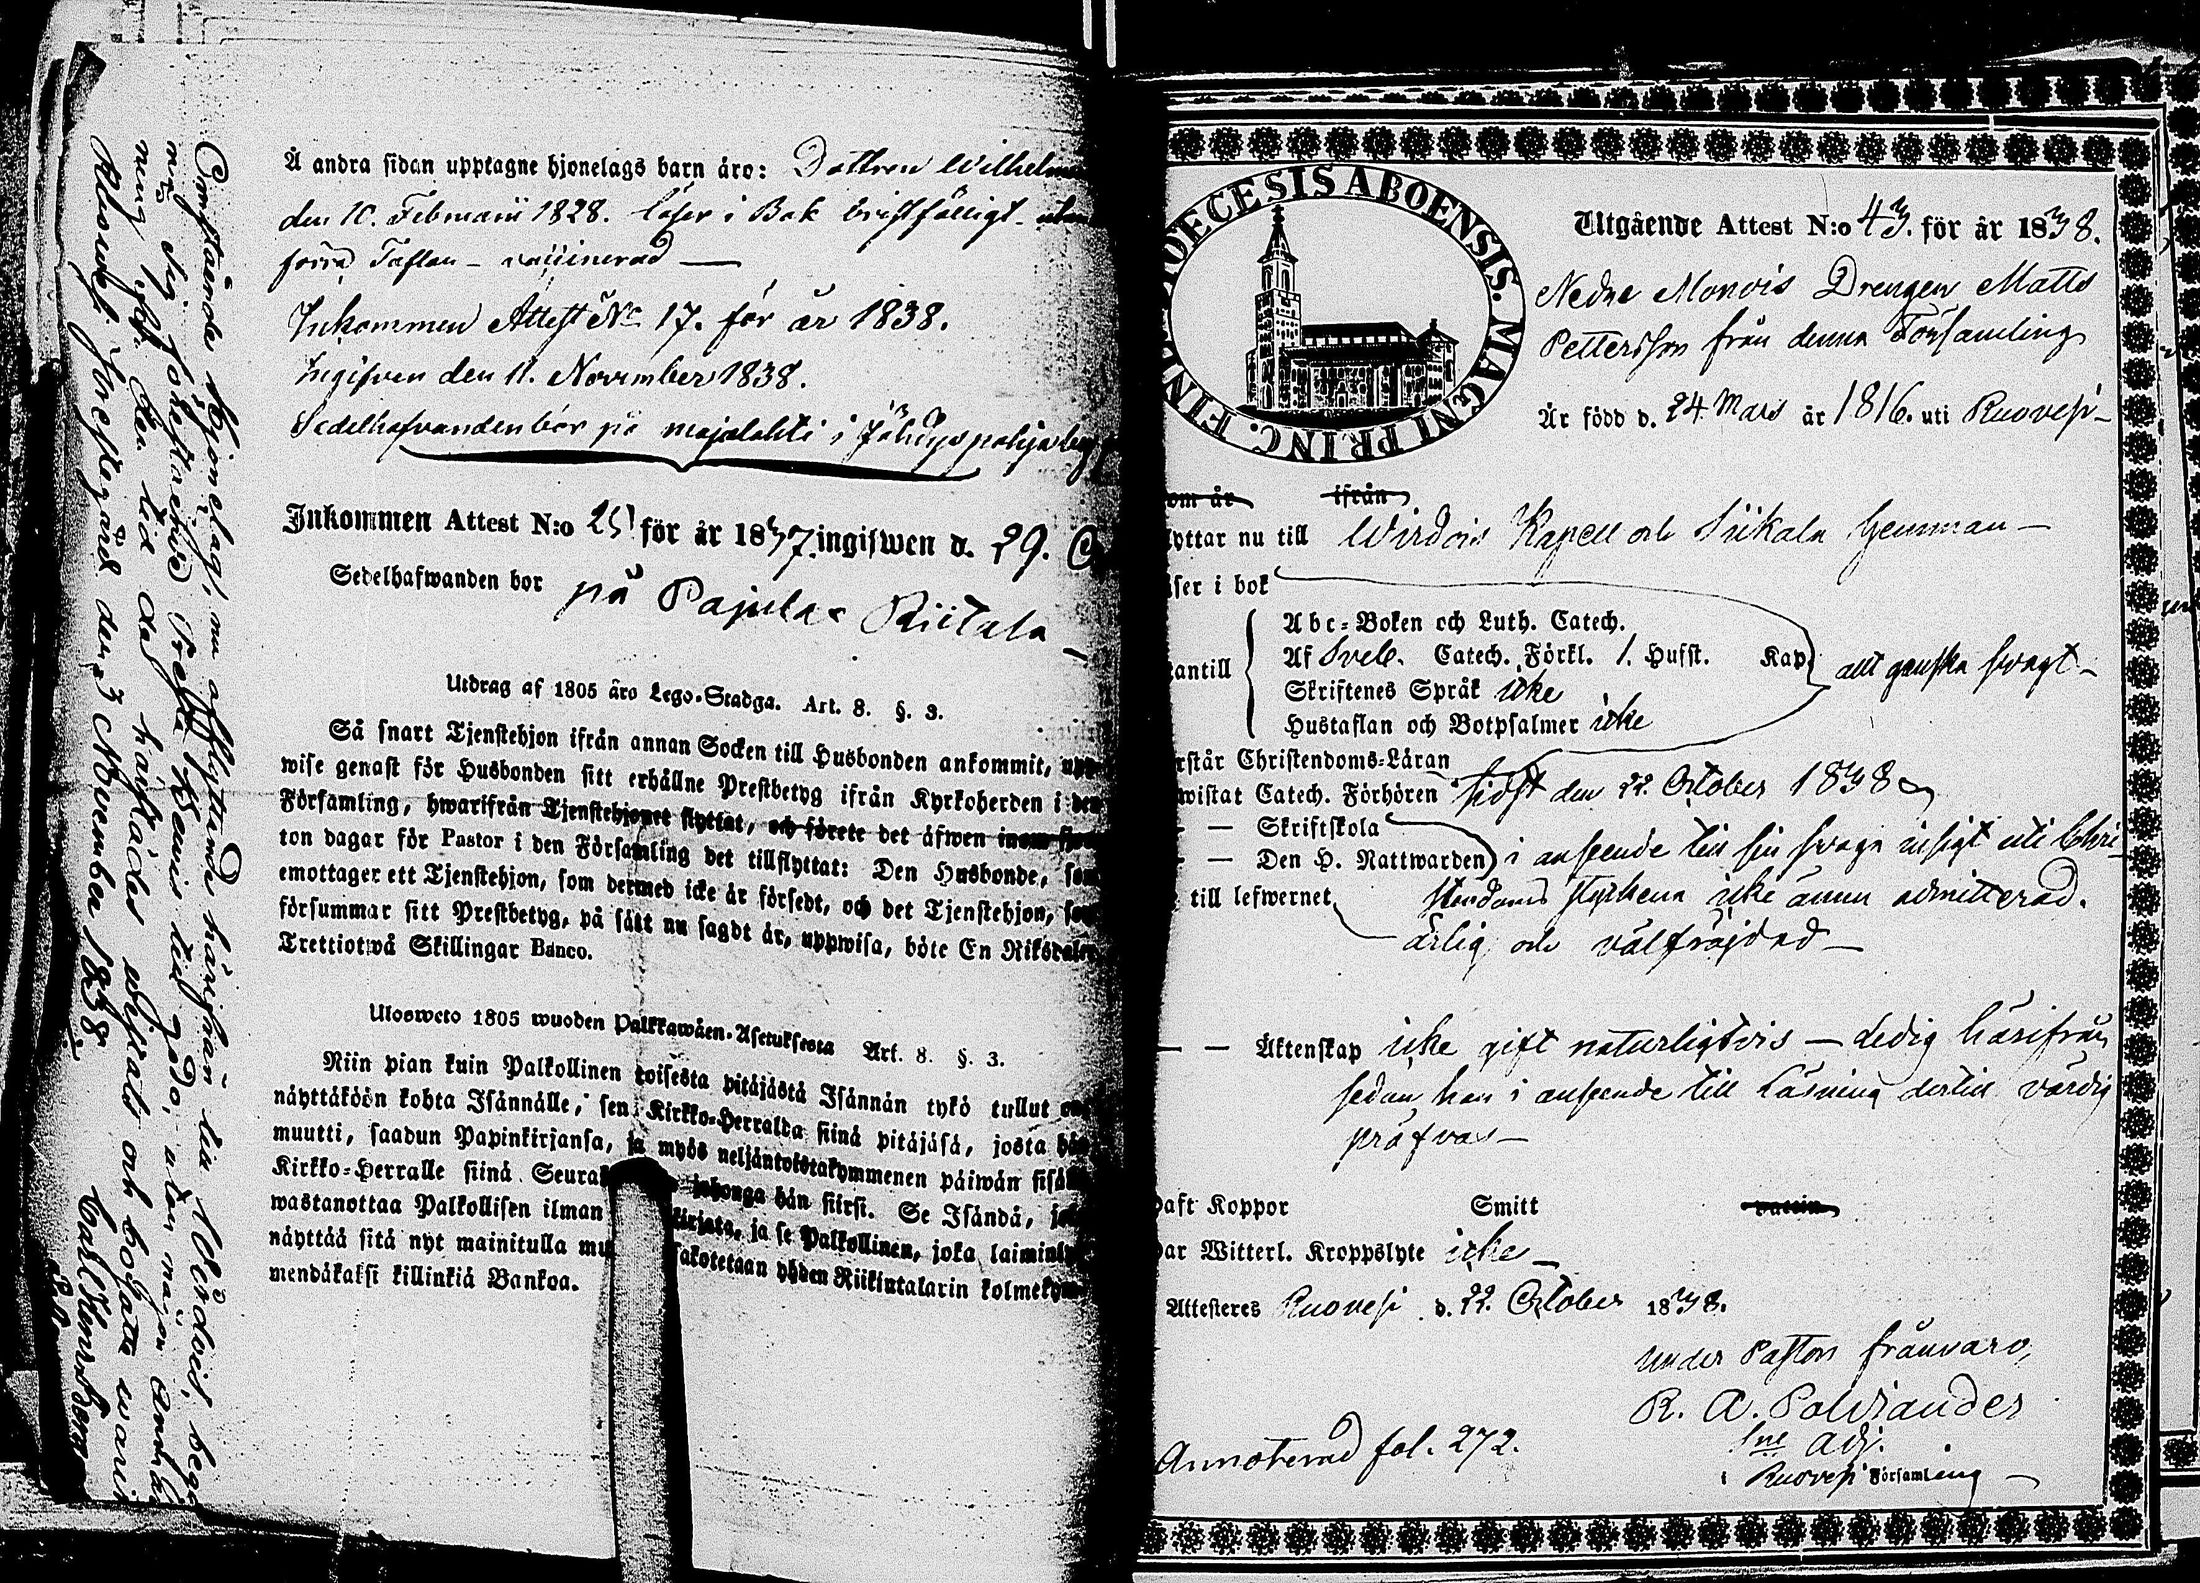 Å andra sidan upptagne hjonelags barn äro: Dottren Wilhelm
den 10. Februarii 1828. läser i Bok bristfälligt
Taflan – vaccinerad —
Inkommen Attest No 17. för år 1838.
Ingifven den 11. November 1838.
Sedelhafvanden bor på
Inkommen Attest N:o 25 för år 1837 ingifwen d. 29.
Sedelhafwanden bor på Pajula Riitala
Utdrag af 1805 års Lego-Stadga. Art. 8. §. 3.
Så snart Tjenstehjon ifrån annan Socken till Husbonden ankommit, upp-
wise genast för Husbonden sitt erhållne Prestbetyg ifrån Kyrkoherden i den
Församling, hwarifrån Tjenstehjonet flyttat, och förete det äfwen inom fjor-
ton dagar för Pastor i den Församling det tillflyttat: Den Husbonde, som
emottager ett Tjenstehjon, som dermed icke är försedt, och det Tjenstehjon, som
försummar sitt Prestbetyg, på sätt nu sagdt är, uppwisa, böte En Riksdaler
Trettiotwå Skillingar Banco.
Ulosweto 1805 wuoden Palkkawäen-Asetuksesta Art. 8. §. 3.
Niin pian kuin Palkollinen toisesta pitäjästä Isännän tykö tullut on,
näyttäköön kohta Isännälle, sen Kirkko-Herralda siinä pitäjäsä, josta hän
muutti, saadun Papinkirjansa, ja myös neljäntoistakymmenen päiwän sisällä
Kirkko-Herralle siinä Seurak johonga hän siirsi. Se Isändä, joka
wastanottaa Palkollisen ilman kirjata, ja se Palkollinen, joka laiminly
näyttää sitä nyt mainitulla mu sakotetaan yhden Riikintalarin kolmekym-
mendäkaksi killinkiä Bankoa.
Omstående hjonelag, nu afflyttande härifrån till Wirdois, begå
sig förestående Preste Bevis till godo, utan någon anmärk
ning för den tid de härstädes vistats och hafva varit
Ruovesi prestegård den 3 November 1838.
DIOECESIS ABOENSIS. MAGNI PRINC. FINL.
Utgående Attest N:o 43. för år 1838.
Nedre Monois Drengen Matts
Pettersson från denna Församling
Är född d. 24 Mars år 1816. uti Ruovesi –
om år ifrån
yttar nu till Wirdois Kapell och Siikala hemman —
äser i bok
antill
Abc-Boken och Luth. Catech.
Af Sveb. Catech. Förkl. 1. Husst. Kap. allt ganska svagt –
Skriftenes Språk icke
Hustaflan och Botpsalmer icke
rstår Christendoms-Läran
wistat Catech. Förhören sidst den 22. October 1838
— — Skriftskola
— — Den H. Nattwarden i anseende till sin svaga insigt uti Chri-
stendoms styckena icke ännu admitterad.
till lefwernet ärlig och välfräjdad —
— — Äktenskap icke gift naturligtvis — ledig härifrån
sedan han i anseende till Läsning dertill värdig
pröfvas —
Haft Koppor Smitt vaccin
Har Witterl. Kroppslyte icke —
Attesteres Ruovesi d. 22. October 1838.
under Pastors frånvaro,
R. A. Polviander
Adj.
i Ruovesi Församling —
Annoterad fol. 272.